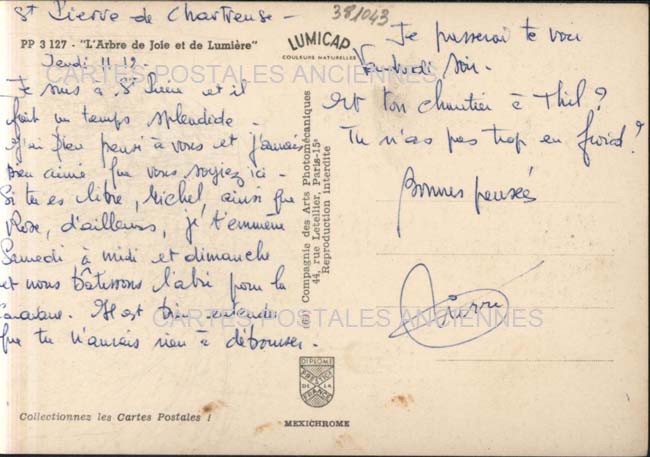 St Pierre de Chartreuse -
381043
PP 3 127 - "L'Arbre de Joie et de Lumière"
LUMICAP
COULEURS NATURELLES
Jeudi 11h 
CARTES POSTALES ANCIENNES
Je suis à St Pierre et il
fait un temps splendide -
J'ai bien pensé à vous et j'aurais
bien aimé que vous soyiez ici -
Si tu es libre, Michel, ainsi que
Rose, d'ailleurs, je t'emmène
Samedi à midi et dimanche
et nous bâtissons l'abri pour la
caravane. Il est bien entendu
que tu n'aurais rien à débourser -
Je passerai te voir
Vendredi soir -
Et ton chantier à Thil ?
Tu n'as pas trop eu froid ?
Bonnes pensées
Pierre
CARTES POSTALES ANCIENNES
(c) Compagnie des Arts Photomécaniques
44, rue Letellier, Paris-15e
Reproduction interdite
DIPLOME
PRESTIGE
DE LA
FRANCE
Collectionnez les Cartes Postales !
MEXICHROME